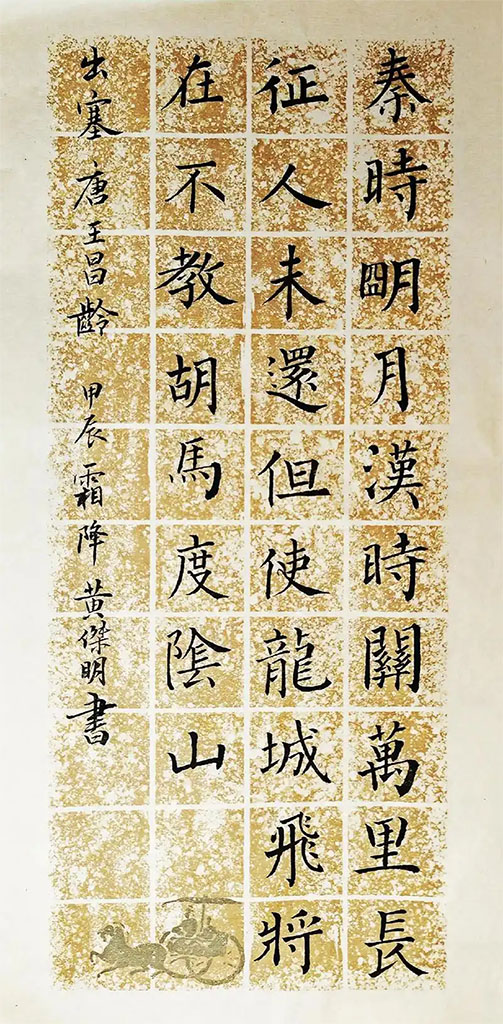 秦時明月漢時關萬里長
征人未還但使龍城飛將
在不教胡馬度陰山
出塞唐王昌齡 甲辰霜降黃傑明書